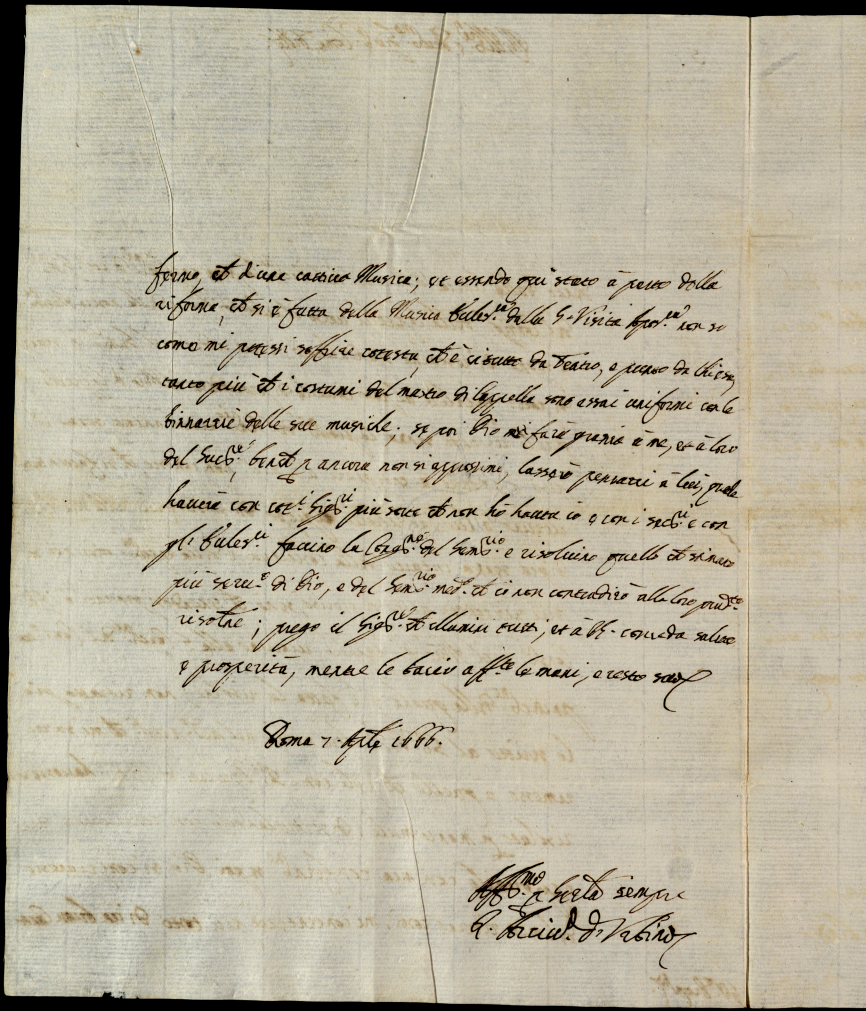 fermo, et d'una cattiva Musica; et essendo qui stato à parte della
riforma, ch si è fatta della Musica Eccles.ca dalla S. Visita Apos.ca non so
come mi potessi soffrire cotesta, ch è tutta da Teatro, e punto da Chiesa,
tanto più ch i costumi del mastro di Cappella sono assai uniformi con le
bizzarrie delle sue musiche; se poi Dio mi farà gratia à me, et à loro
del Suc.re, bench p ancora non si approssimi, lasserò pensarvi à lui, quale
haverà con cot.i Sig.ri più sorte ch non hò havuta io e con i sec.ri e con
gl'Eccles.ci faccino la Cong.ne del Sem.rio e risolvino quello ch stimano
più serv.o di Dio, e del Sem.rio med.o ch io non contradirò alla loro prud.te
risol.ne; prego il Sig.re ch illumini tutti, et à V.S. conceda salute
e prosperità, mentre le bacio aff.te le mani, e resto
Roma 7. Aple 1666.
Aff.mo p ser.la sempre
A. Arciv.o d'Urbino